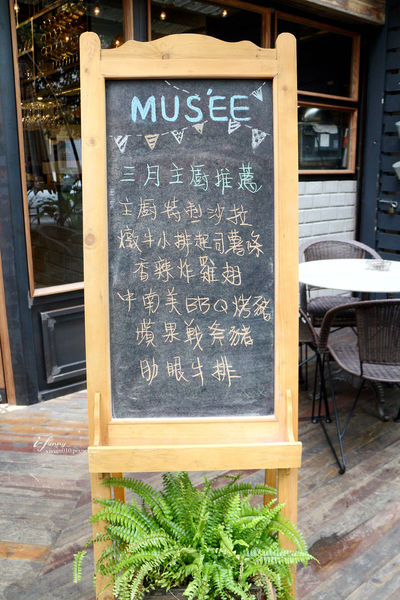 MUSÉE
三月主廚推薦
主廚特製沙拉
燉牛小排起司薯條
香辣炸雞翅
中南美BBQ烤豬
蘋果戰斧豬
肋眼牛排
i-funny